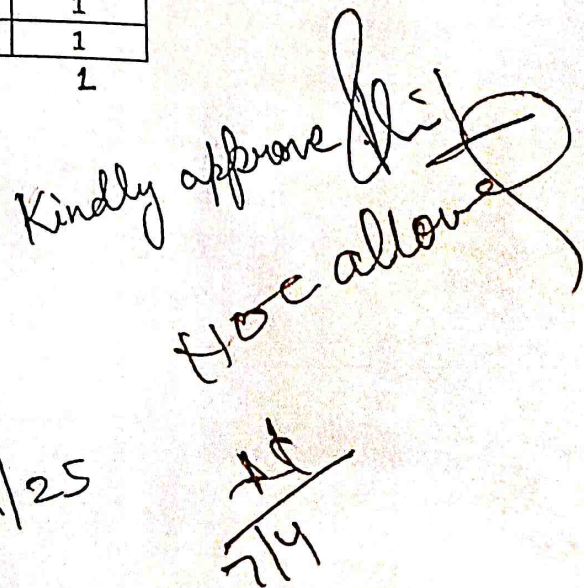 1
1
1
Kindly approve
HOC allowed
/25
7/4